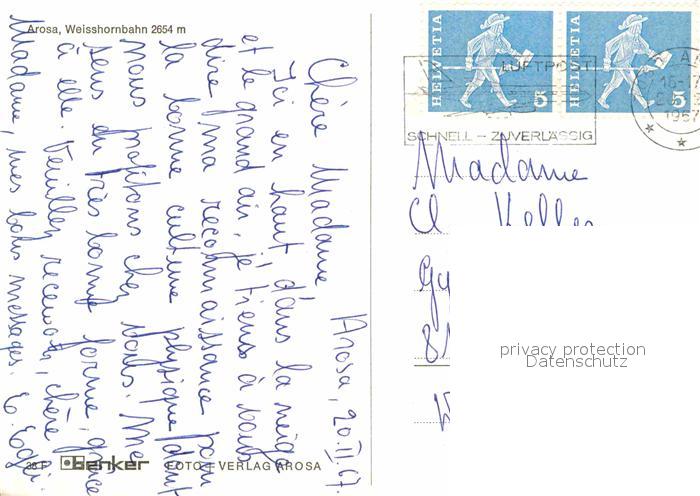 Arosa, Weisshornbahn 2654 m
Arosa, 20.II.67.
Chère Madame
Ici en haut dans la neige
et le grand air, je tiens à vous
dire ma reconnaissance pour
la bonne culture physique dont
nous profitons chez vous. Me
sens en très bonne forme, grâce
à elle. Veuillez recevoir, chère
Madame, mes bons messages. E. Egli.
38 F Denker FOTO-VERLAG AROSA
HELVETIA 5
HELVETIA 5
LUFTPOST
SCHNELL - ZUVERLÄSSIG
1967
Madame
Cl. Keller
Gy
8
privacy protection
Datenschutz